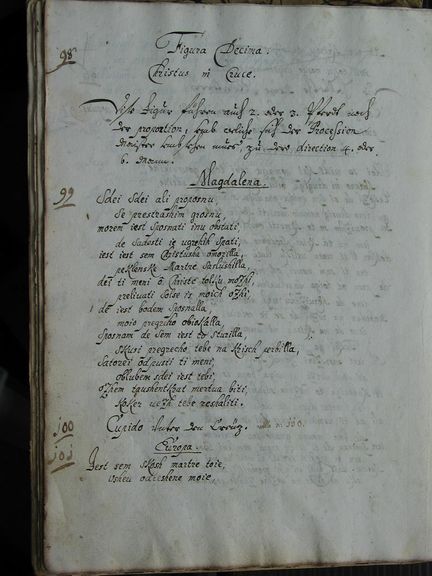 98
Figura Decima.
Christus in Cruce.
Dise Figur führen auch 2. oder 3. Pferdt nach
der proportion, umb welche sich der Procession
Maister umbsehen mues, zu dero direction 4. oder
6. Mann.
Magdalena.
99
Sdei Sdei ali proposnu,
se prestrashim grosnu,
morem iest Sposnati inu obstati,
de Sadosti ie ugrehih Spati,
iest iest sem Christusha omorilla,
peklenske Martre Saslushilla,
dei ti meni ô Christe tolku mozhi,
prelivati Solse is moich ozhi,
de iest bodem Sposnalla,
moio pregreho obiokalla,
Sposnam de sem iest to sturilla,
skusi pregreho tebe na Krisch perbilla,
Satorei odpusti ti meni,
oblubem sdei iest tebi,
ozhem taushentkrat mertua biti,
kaker vezh tebe reshaliti.
100
Cupido unter den Creüz.
101
Europa.
Iest sem skosh martre toie,
usheu odreshene moie,